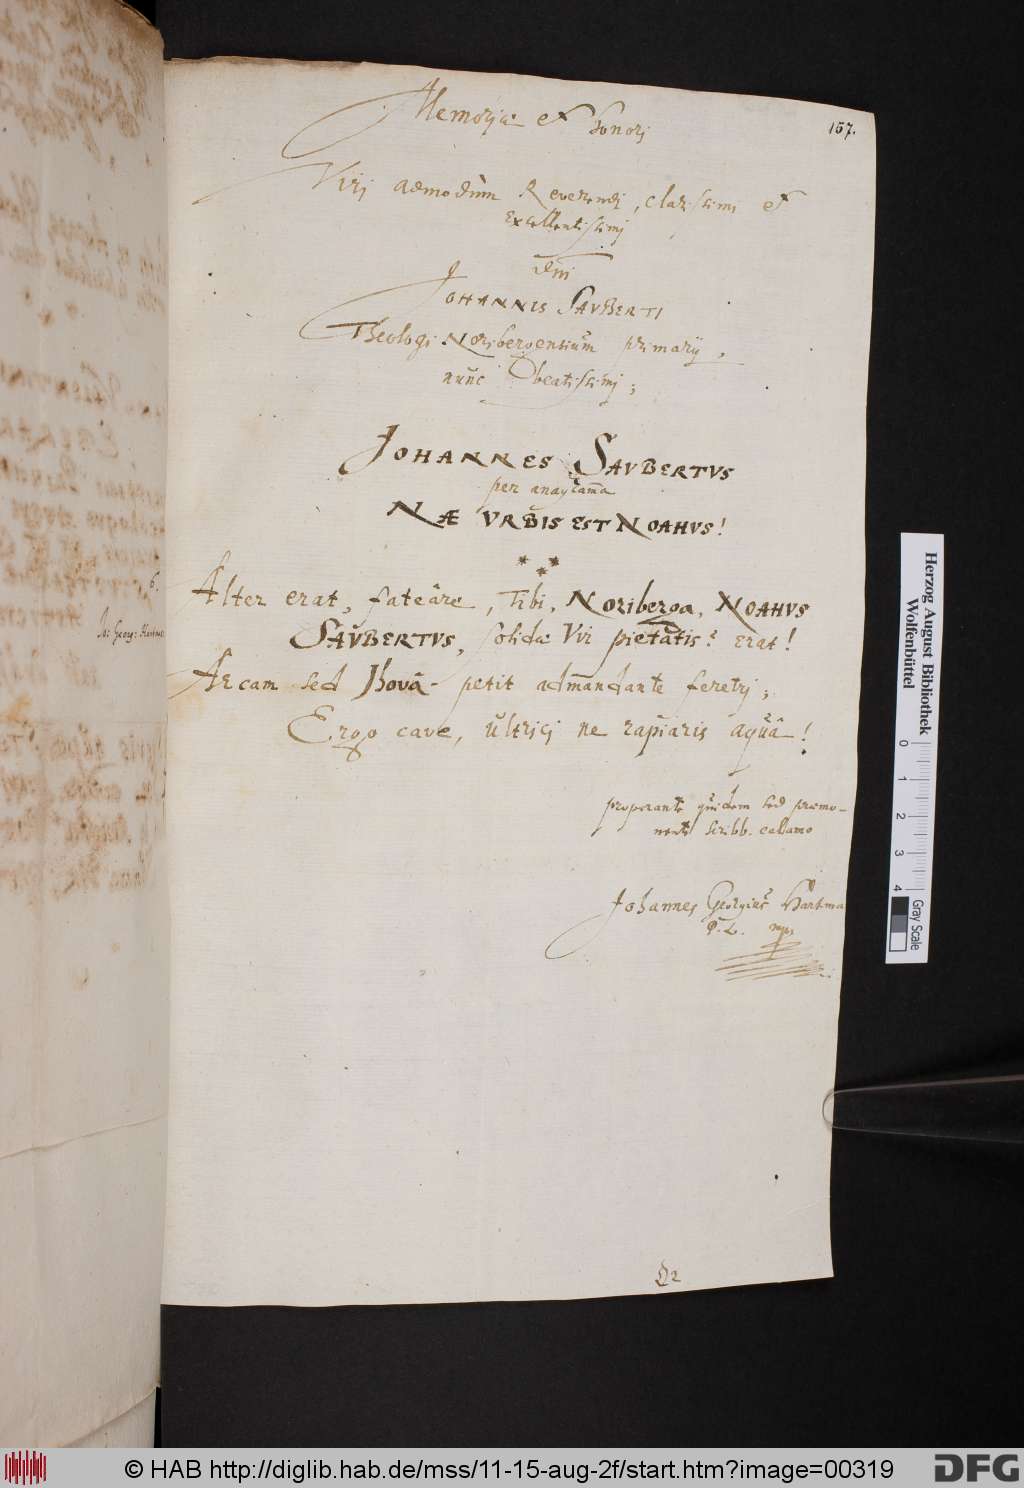 157.
Memoriæ et honori
Viri admodum Reverendi, clarissimi et
Excellentissimi
Dni
JOHANNIS SAVBERTI
Theologi Noribergensium primarij,
nunc beatissimi;
JOHANNES SAVBERTVS
per anagrama
NÆ VRBIS EST NOAHVS!
Alter erat, fateare, Tibi, Noriberga, NOAHVS
SAVBERTVS, solidæ Vir pietatis erat!
Arcam sed Jhová petit admandante feretri;
Ergo cave, ultrici ne rapiaris aquâ!
properante quidem sed præmo-
nente scribb. calamo
Johannes Georgius Hartma
P. L. mp
Q2
6.
Jo: Georg: Hartma
Herzog August Bibliothek
Wolfenbüttel
0 1 2 3 4
Gray Scale
© HAB http://diglib.hab.de/mss/11-15-aug-2f/start.htm?image=00319
DFG